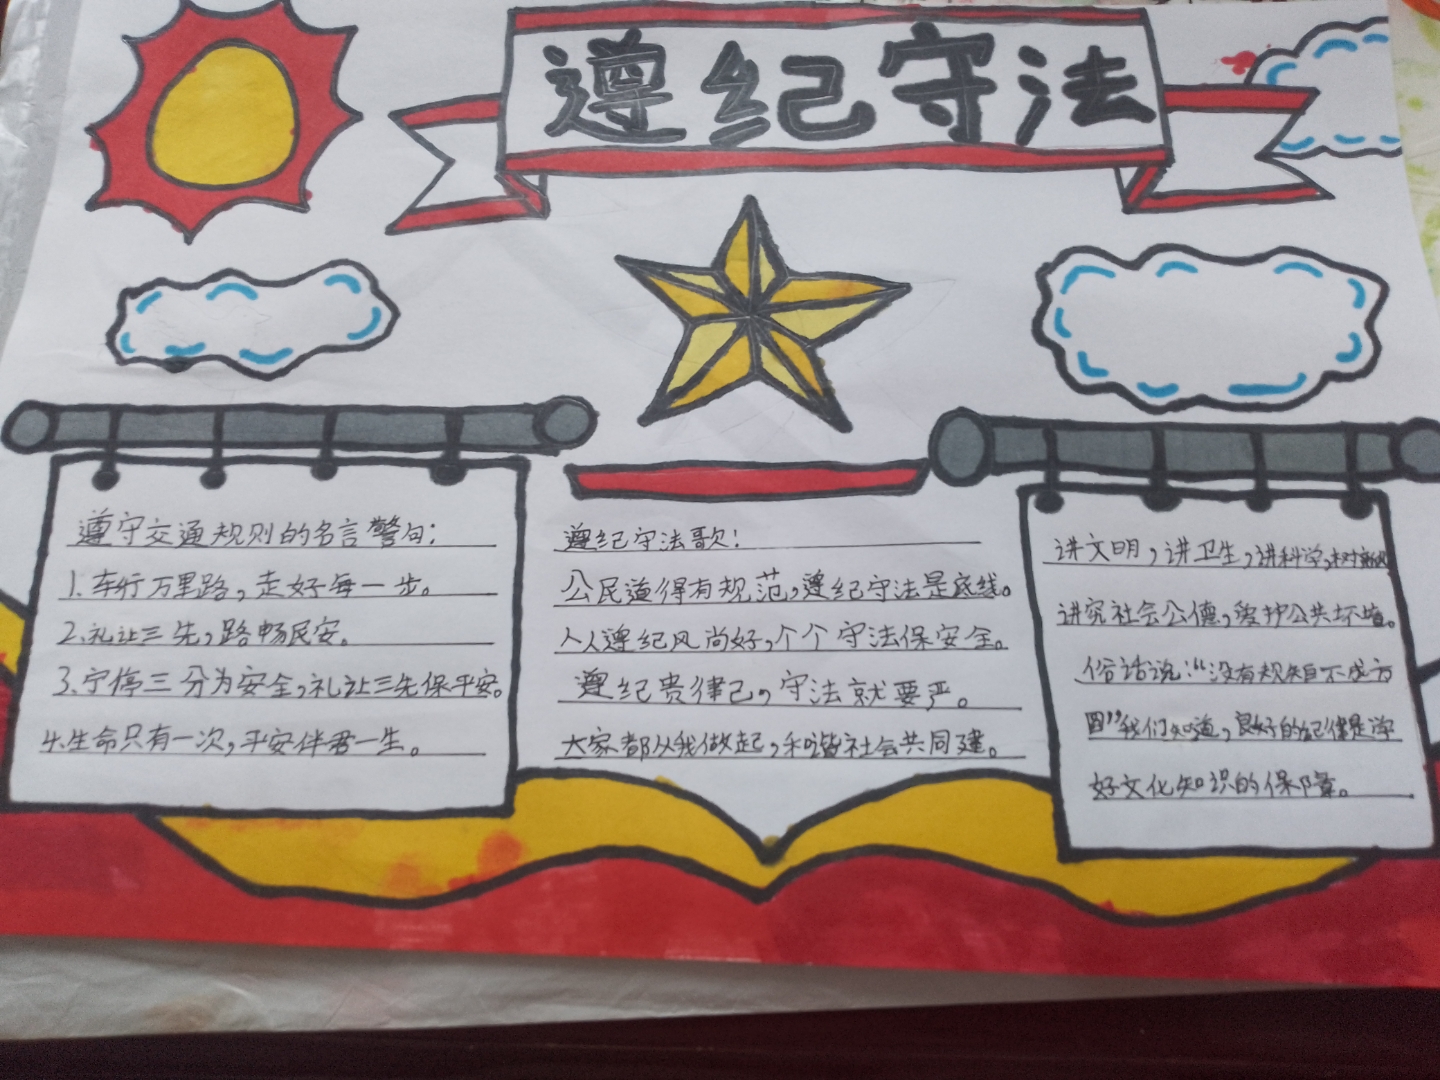 遵纪守法
遵守交通规则的名言警句:
1.车行万里路,走好每一步。
2.礼让三先,路畅民安。
3.宁停三分为安全,礼让三先保平安。
4.生命只有一次,平安伴君一生。
遵纪守法歌!
公民道得有规范,遵纪守法是底线。
人人遵纪风尚好,个个守法保安全。
遵纪贵律己,守法就要严。
大家都从我做起,和谐社会共同建。
讲文明,讲卫生,讲科学,树新风
讲究社会公德,爱护公共环境。
俗话说:“没有规矩不成方
圆”我们知道,良好的纪律是学
好文化知识的保障。